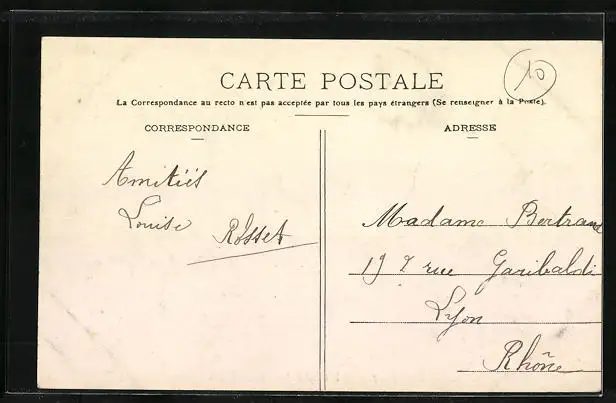 CARTE POSTALE
10
La Correspondance au recto n'est pas acceptée par tous les pays étrangers (Se renseigner à la Poste).
CORRESPONDANCE
Amitiés
Louise Rosset
ADRESSE
Madame Bertrand
197 rue Garibaldi
Lyon
Rhône